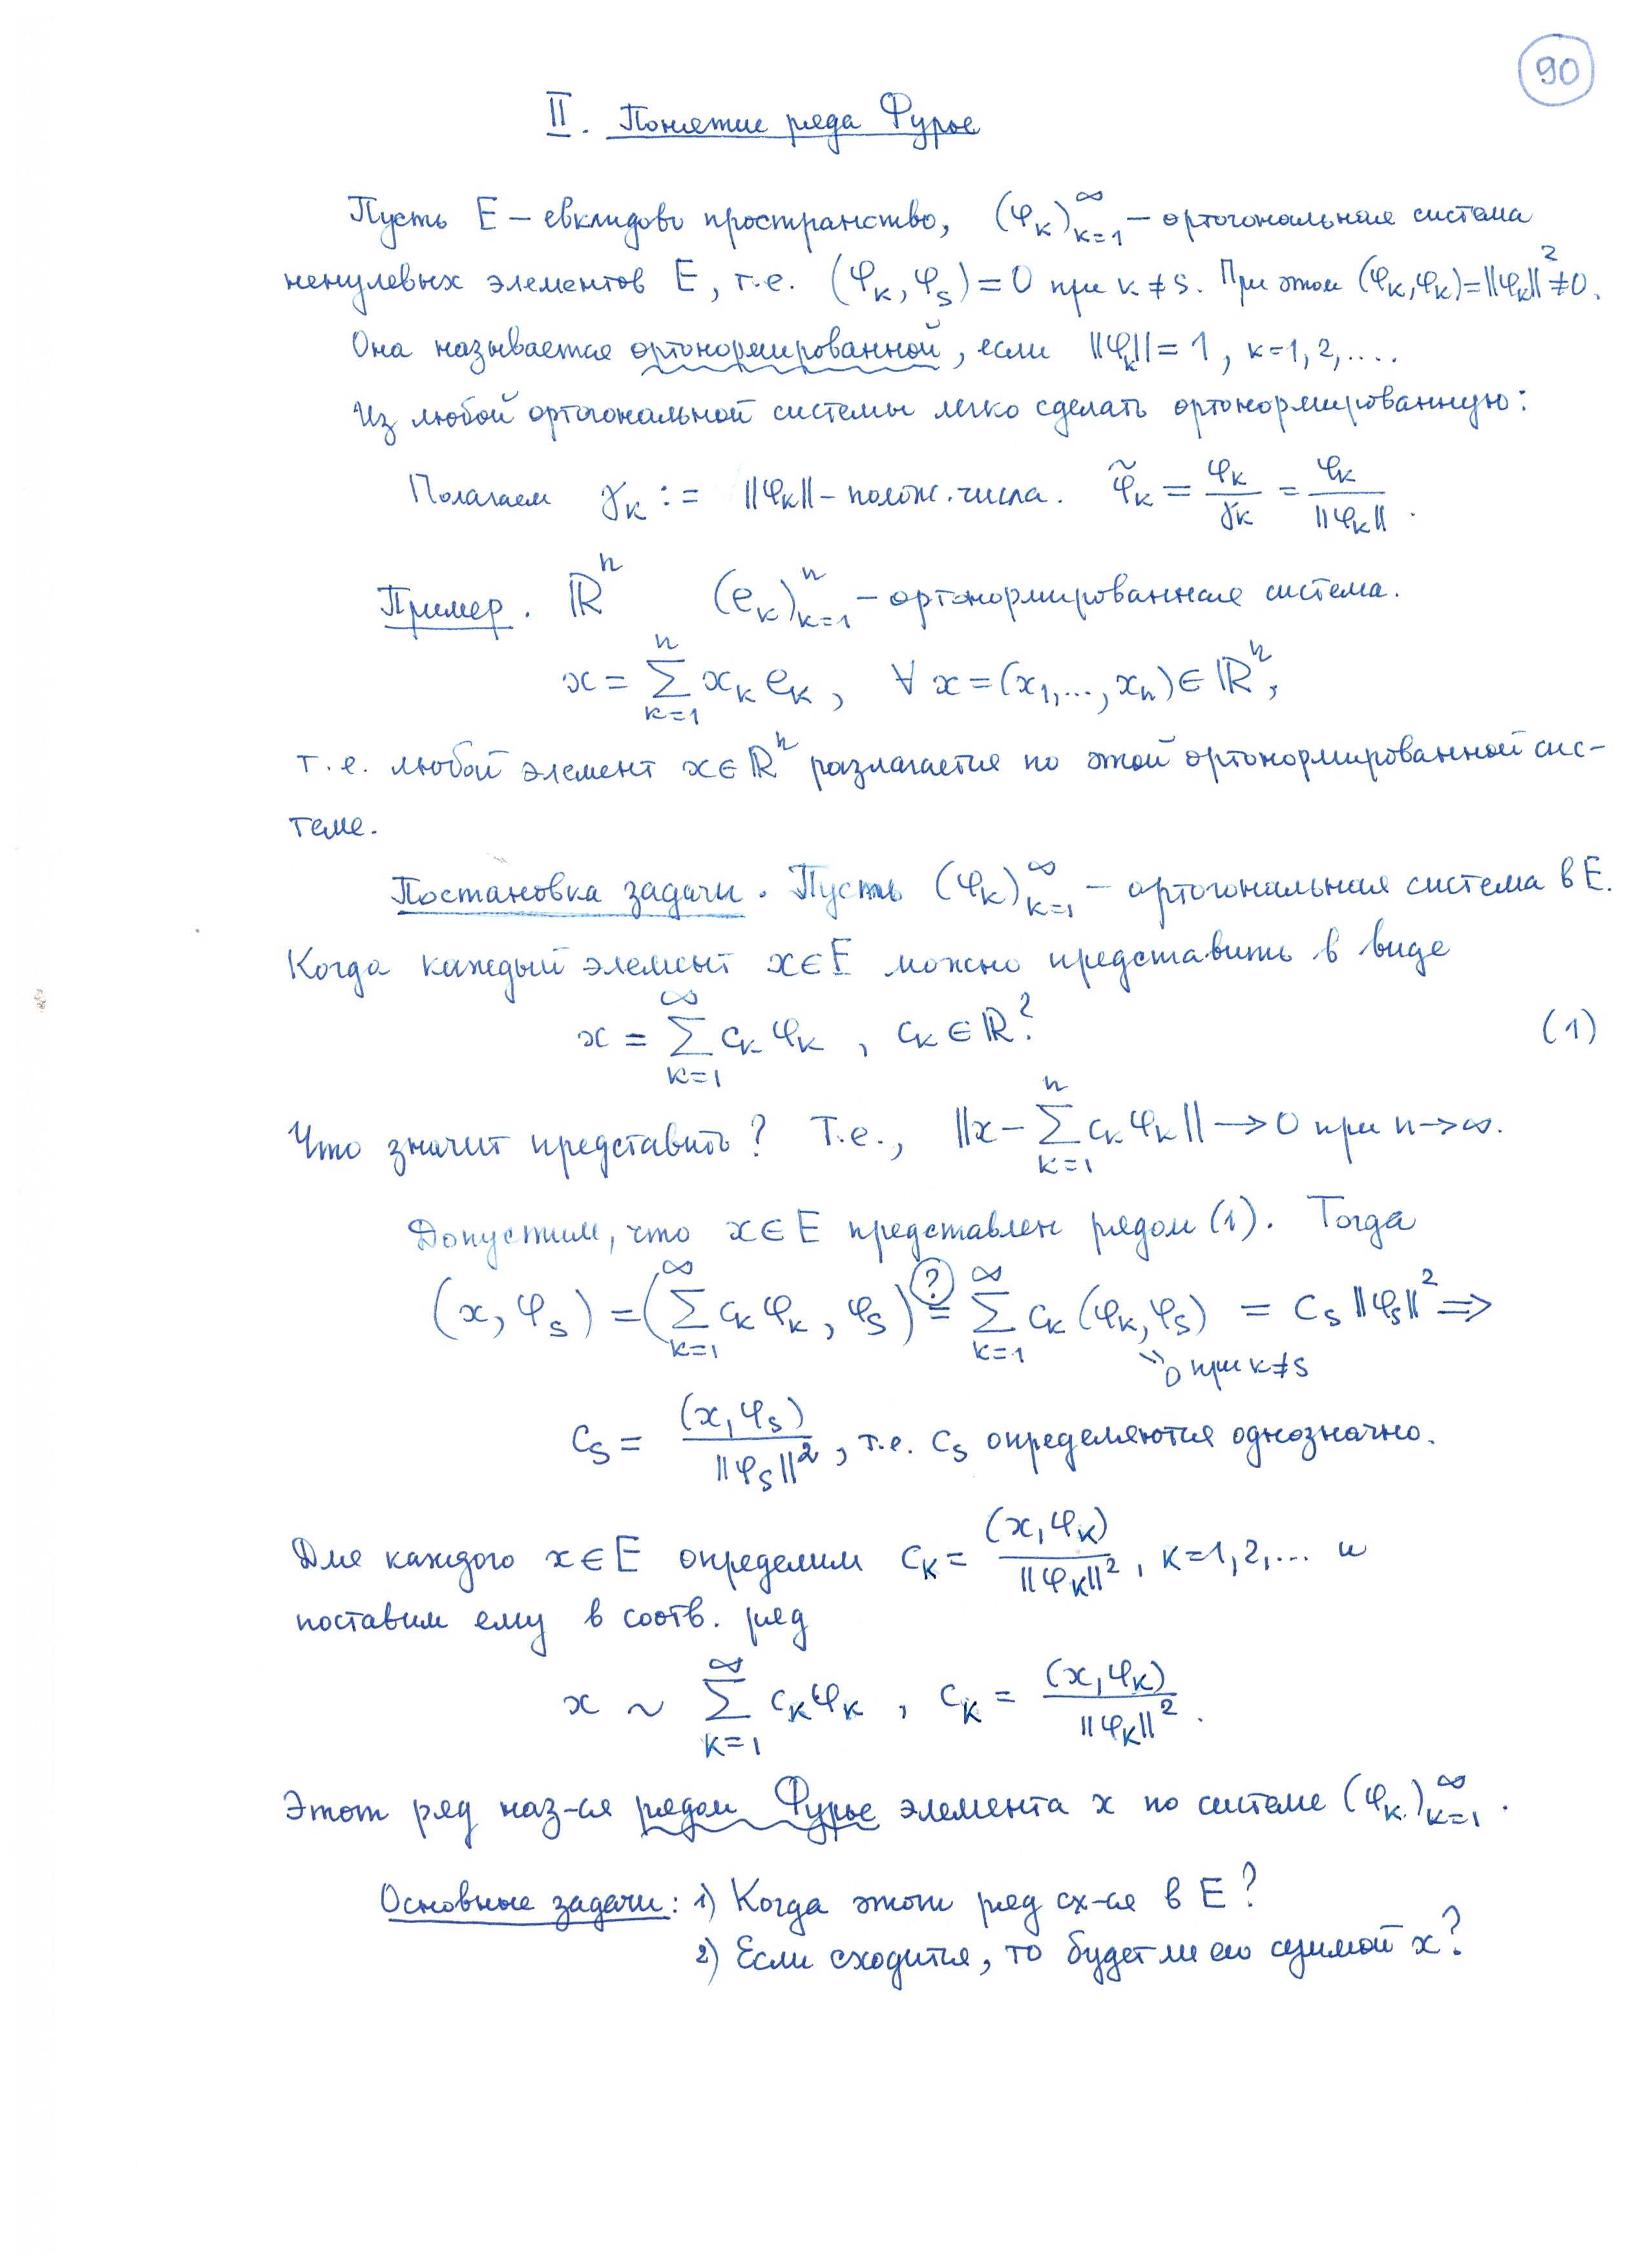 90
II. Понятие ряда Фурье
Пусть E – евклидово пространство, (φ_k)_{k=1}^∞ – ортогональная система
ненулевых элементов E, т.е. (φ_k, φ_s) = 0 при k ≠ s. При этом (φ_k, φ_k) = ||φ_k||² ≠ 0.
Она называется ортонормированной, если ||φ_k|| = 1, k = 1, 2, ....
Из любой ортогональной системы легко сделать ортонормированную:
Полагаем γ_k := ||φ_k|| – полож. числа. φ̃_k = φ_k / γ_k = φ_k / ||φ_k|| .
Пример. ℝ^n (e_k)_{k=1}^n – ортонормированная система.
x = ∑_{k=1}^n x_k e_k, ∀ x = (x_1, ..., x_n) ∈ ℝ^n,
т.е. любой элемент x ∈ ℝ^n разлагается по этой ортонормированной сис-
теме.
Постановка задачи. Пусть (φ_k)_{k=1}^∞ – ортогональная система в E.
Когда каждый элемент x ∈ E можно представить в виде
x = ∑_{k=1}^∞ c_k φ_k , c_k ∈ ℝ? (1)
Что значит представить? Т.е., ||x – ∑_{k=1}^n c_k φ_k|| → 0 при n → ∞.
Допустим, что x ∈ E представлен рядом (1). Тогда
(x, φ_s) = (∑_{k=1}^∞ c_k φ_k, φ_s) =^{(?)} ∑_{k=1}^∞ c_k (φ_k, φ_s) = c_s ||φ_s||² ⇒
= 0 при k ≠ s
c_s = (x, φ_s) / ||φ_s||² , т.е. c_s определяются однозначно.
Для каждого x ∈ E определим c_k = (x, φ_k) / ||φ_k||² , k = 1, 2, ... и
поставим ему в соотв. ряд
x ~ ∑_{k=1}^∞ c_k φ_k , c_k = (x, φ_k) / ||φ_k||² .
Этот ряд наз-ся рядом Фурье элемента x по системе (φ_k)_{k=1}^∞ .
Основные задачи: 1) Когда этот ряд сх-ся в E?
2) Если сходится, то будет ли его суммой x?